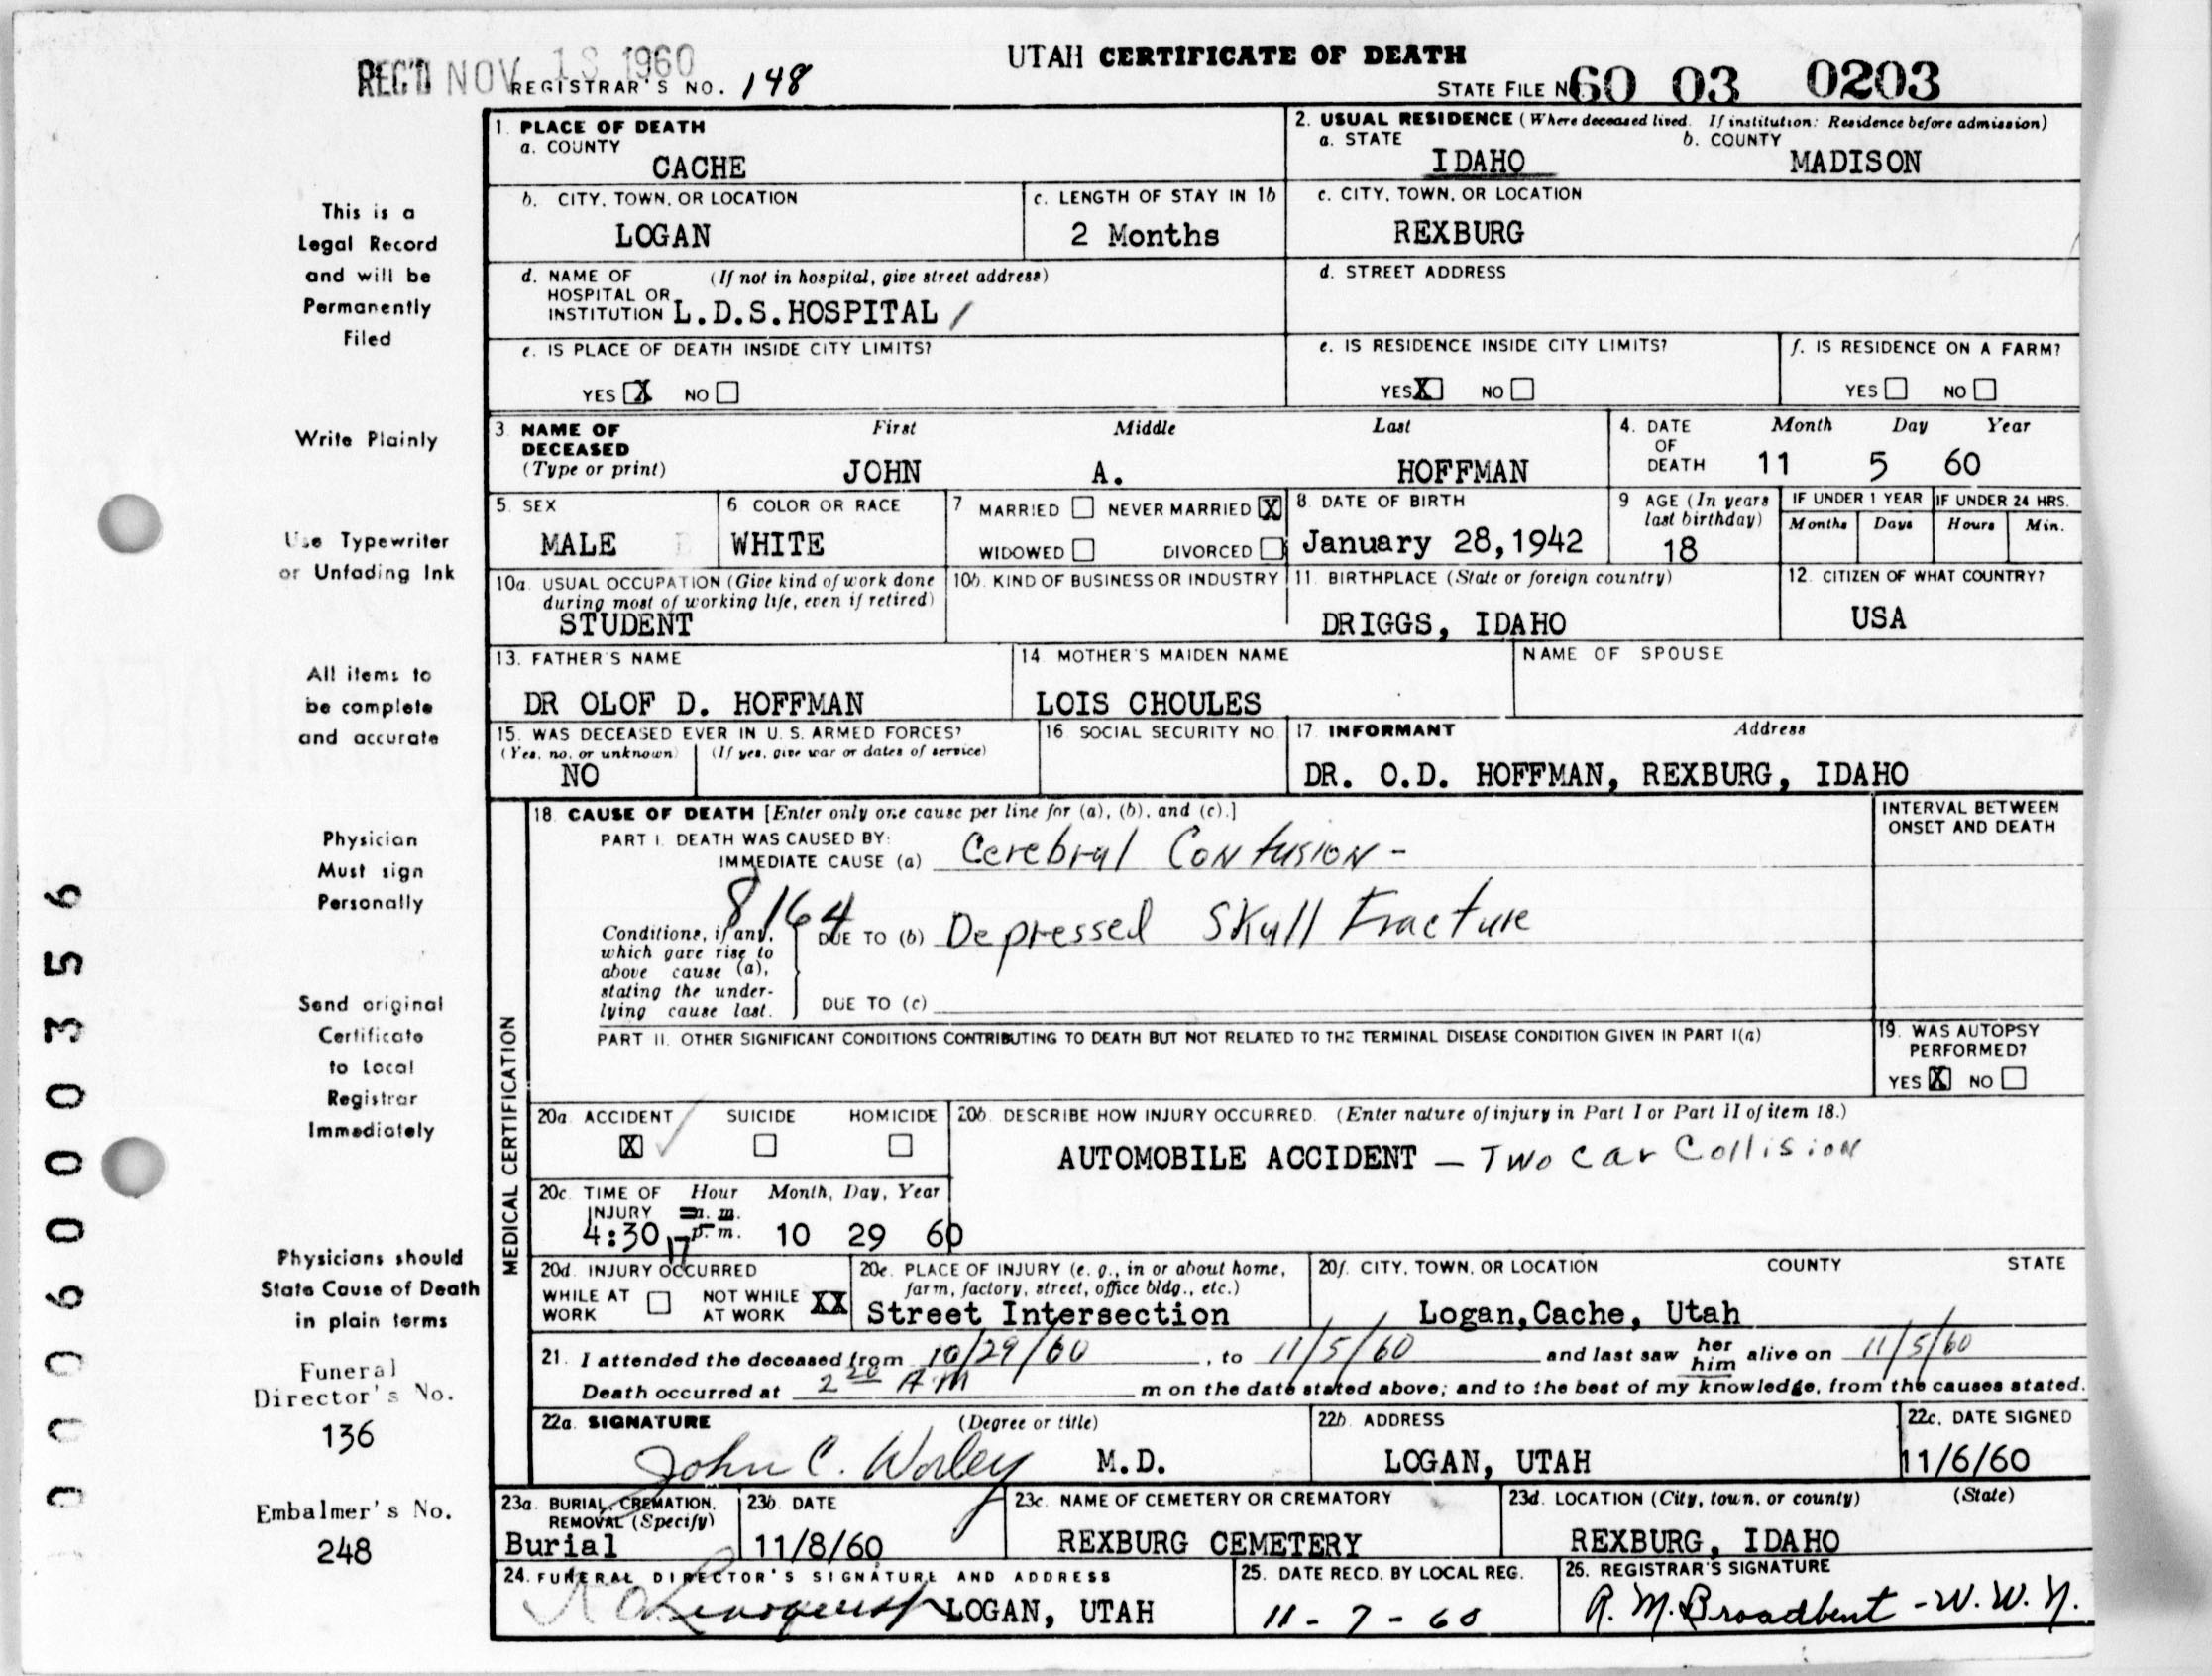 UTAH CERTIFICATE OF DEATH
REC'D NOV 18 1960
REGISTRAR'S NO. 148
STATE FILE NO 60 03 0203
This is a
Legal Record
and will be
Permanently
Filed
Write Plainly
Use Typewriter
or Unfading Ink
All items to
be complete
and accurate
Physician
Must sign
Personally
Send original
Certificate
to Local
Registrar
Immediately
Physicians should
State Cause of Death
in plain terms
Funeral
Director's No.
136
Embalmer's No.
248
000600356
1. PLACE OF DEATH
a. COUNTY
CACHE
2. USUAL RESIDENCE (Where deceased lived. If institution: Residence before admission)
a. STATE b. COUNTY
IDAHO MADISON
b. CITY, TOWN, OR LOCATION
LOGAN
c. LENGTH OF STAY IN 1b
2 Months
c. CITY, TOWN, OR LOCATION
REXBURG
d. NAME OF (If not in hospital, give street address)
HOSPITAL OR
INSTITUTION L.D.S.HOSPITAL /
d. STREET ADDRESS
e. IS PLACE OF DEATH INSIDE CITY LIMITS?
YES X NO
e. IS RESIDENCE INSIDE CITY LIMITS?
YES X NO
f. IS RESIDENCE ON A FARM?
YES NO
3. NAME OF DECEASED (Type or print)
First Middle Last
JOHN A. HOFFMAN
4. DATE OF DEATH
Month Day Year
11 5 60
5. SEX
MALE
6. COLOR OR RACE
WHITE
7. MARRIED NEVER MARRIED X
WIDOWED DIVORCED
8. DATE OF BIRTH
January 28,1942
9. AGE (In years last birthday)
18
IF UNDER 1 YEAR IF UNDER 24 HRS.
Months Days Hours Min.
10a. USUAL OCCUPATION (Give kind of work done
during most of working life, even if retired)
STUDENT
10b. KIND OF BUSINESS OR INDUSTRY
11. BIRTHPLACE (State or foreign country)
DRIGGS, IDAHO
12. CITIZEN OF WHAT COUNTRY?
USA
13. FATHER'S NAME
DR OLOF D. HOFFMAN
14. MOTHER'S MAIDEN NAME
LOIS CHOULES
NAME OF SPOUSE
15. WAS DECEASED EVER IN U. S. ARMED FORCES?
(Yes, no, or unknown) (If yes, give war or dates of service)
NO
16. SOCIAL SECURITY NO.
17. INFORMANT Address
DR. O.D. HOFFMAN, REXBURG, IDAHO
MEDICAL CERTIFICATION
18. CAUSE OF DEATH [Enter only one cause per line for (a), (b), and (c).]
INTERVAL BETWEEN
ONSET AND DEATH
PART I. DEATH WAS CAUSED BY:
IMMEDIATE CAUSE (a) Cerebral Contusion -
8164
Conditions, if any,
which gave rise to
above cause (a),
stating the under-
lying cause last.
DUE TO (b) Depressed Skull Fracture
DUE TO (c)
PART II. OTHER SIGNIFICANT CONDITIONS CONTRIBUTING TO DEATH BUT NOT RELATED TO THE TERMINAL DISEASE CONDITION GIVEN IN PART I(a)
19. WAS AUTOPSY
PERFORMED?
YES X NO
20a. ACCIDENT SUICIDE HOMICIDE
X
20b. DESCRIBE HOW INJURY OCCURRED. (Enter nature of injury in Part I or Part II of item 18.)
AUTOMOBILE ACCIDENT - Two Car Collision
20c. TIME OF INJURY Hour Month, Day, Year
a. m.
4:30 p. m. 10 29 60
17
20d. INJURY OCCURRED
WHILE AT WORK NOT WHILE AT WORK XX
20e. PLACE OF INJURY (e. g., in or about home,
farm, factory, street, office bldg., etc.)
Street Intersection
20f. CITY, TOWN, OR LOCATION COUNTY STATE
Logan,Cache, Utah
21. I attended the deceased from 10/29/60, to 11/5/60 and last saw her him alive on 11/5/60
Death occurred at 2 20 A m m on the date stated above; and to the best of my knowledge, from the causes stated.
22a. SIGNATURE (Degree or title)
John C. Worley M.D.
22b. ADDRESS
LOGAN, UTAH
22c. DATE SIGNED
11/6/60
23a. BURIAL, CREMATION,
REMOVAL (Specify)
Burial
23b. DATE
11/8/60
23c. NAME OF CEMETERY OR CREMATORY
REXBURG CEMETERY
23d. LOCATION (City, town, or county) (State)
REXBURG, IDAHO
24. FUNERAL DIRECTOR'S SIGNATURE AND ADDRESS
LOGAN, UTAH
25. DATE RECD. BY LOCAL REG.
11 - 7 - 60
26. REGISTRAR'S SIGNATURE
R. M. Broadbent - W. W. N.